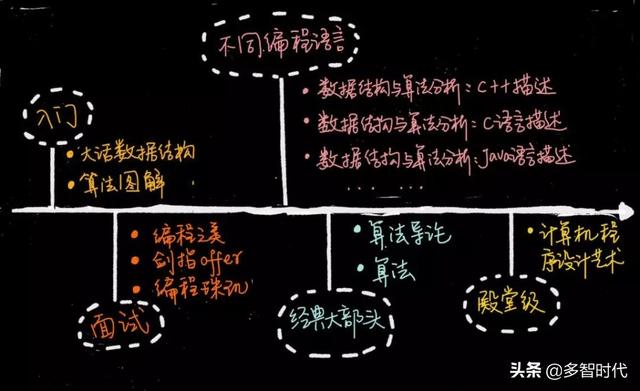 不同编程语言
数据结构与算法分析：C++描述
数据结构与算法分析：C语言描述
数据结构与算法分析：Java语言描述
... ...
入门
大话数据结构
算法图解
编程之美
剑指offer
编程珠玑
面试
算法导论
算法
经典大部头
计算机程
序设计艺术
殿堂级
头条 @多智时代